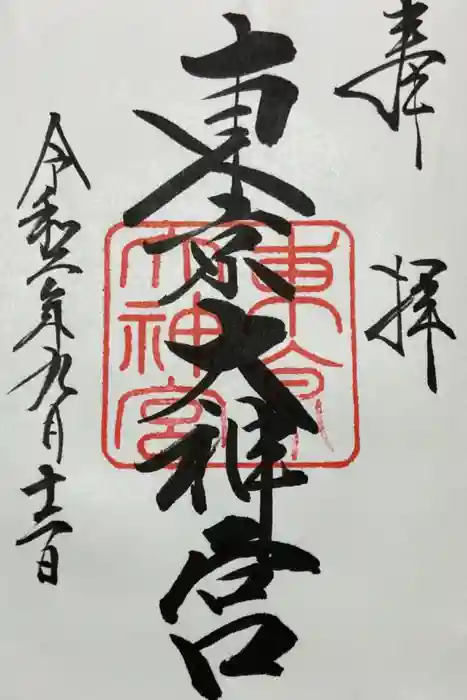 奉拝
東京大神宮
東京大神宮
令和六年九月十二日